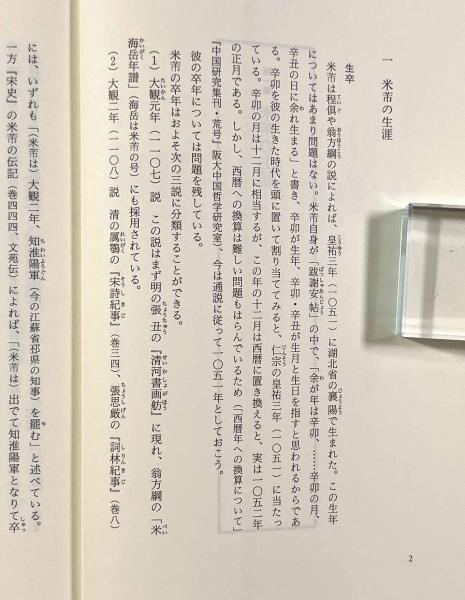 一　米芾の生涯
生卒
米芾は程俱や翁方綱の説によれば、皇祐三年（一〇五一）に湖北省の襄陽で生まれた。この生年
についてはあまり問題はない。米芾自身が、「跋謝安帖」の中で、「余が年は辛卯、……辛卯の月、
辛丑の日に余れ生まる」と書き、辛卯が生年、辛卯・辛丑が生月と生日を指すと思われるからであ
る。辛卯を彼の生きた時代を頭に置いて割り当ててみると、仁宗の皇祐三年（一〇五一）に当たっ
ている。辛卯の月は十二月に相当するが、この年の十二月は西暦に置き換えると、実は一〇五二年
の正月である。しかし、西暦への換算は難しい問題もはらんでいるため（「西暦年への換算について」
『中国研究集刊・荒号』阪大中国哲学研究室）、今は通説に従って一〇五一年としておこう。
彼の卒年については問題を残している。
米芾の卒年はおよそ次の三説に分類することができる。
（1）大観元年（一一〇七）説　この説はまず明の張丑の『清河書画舫』に現れ、翁方綱の「米
海岳年譜」（海岳は米芾の号）にも採用されている。
（2）大観二年（一一〇八）説　清の厲鶚の『宋詩紀事』（巻三四）、張思厳の『詞林紀事』（巻八）
には、いずれも「（米芾は）大観二年、知淮陽軍（今の江蘇省邳県の知事）を罷む」と述べている。
一方『宋史』の米芾の伝記（巻四四四、文苑伝）によれば、「（米芾は）出でて知淮陽軍となりて卒
2